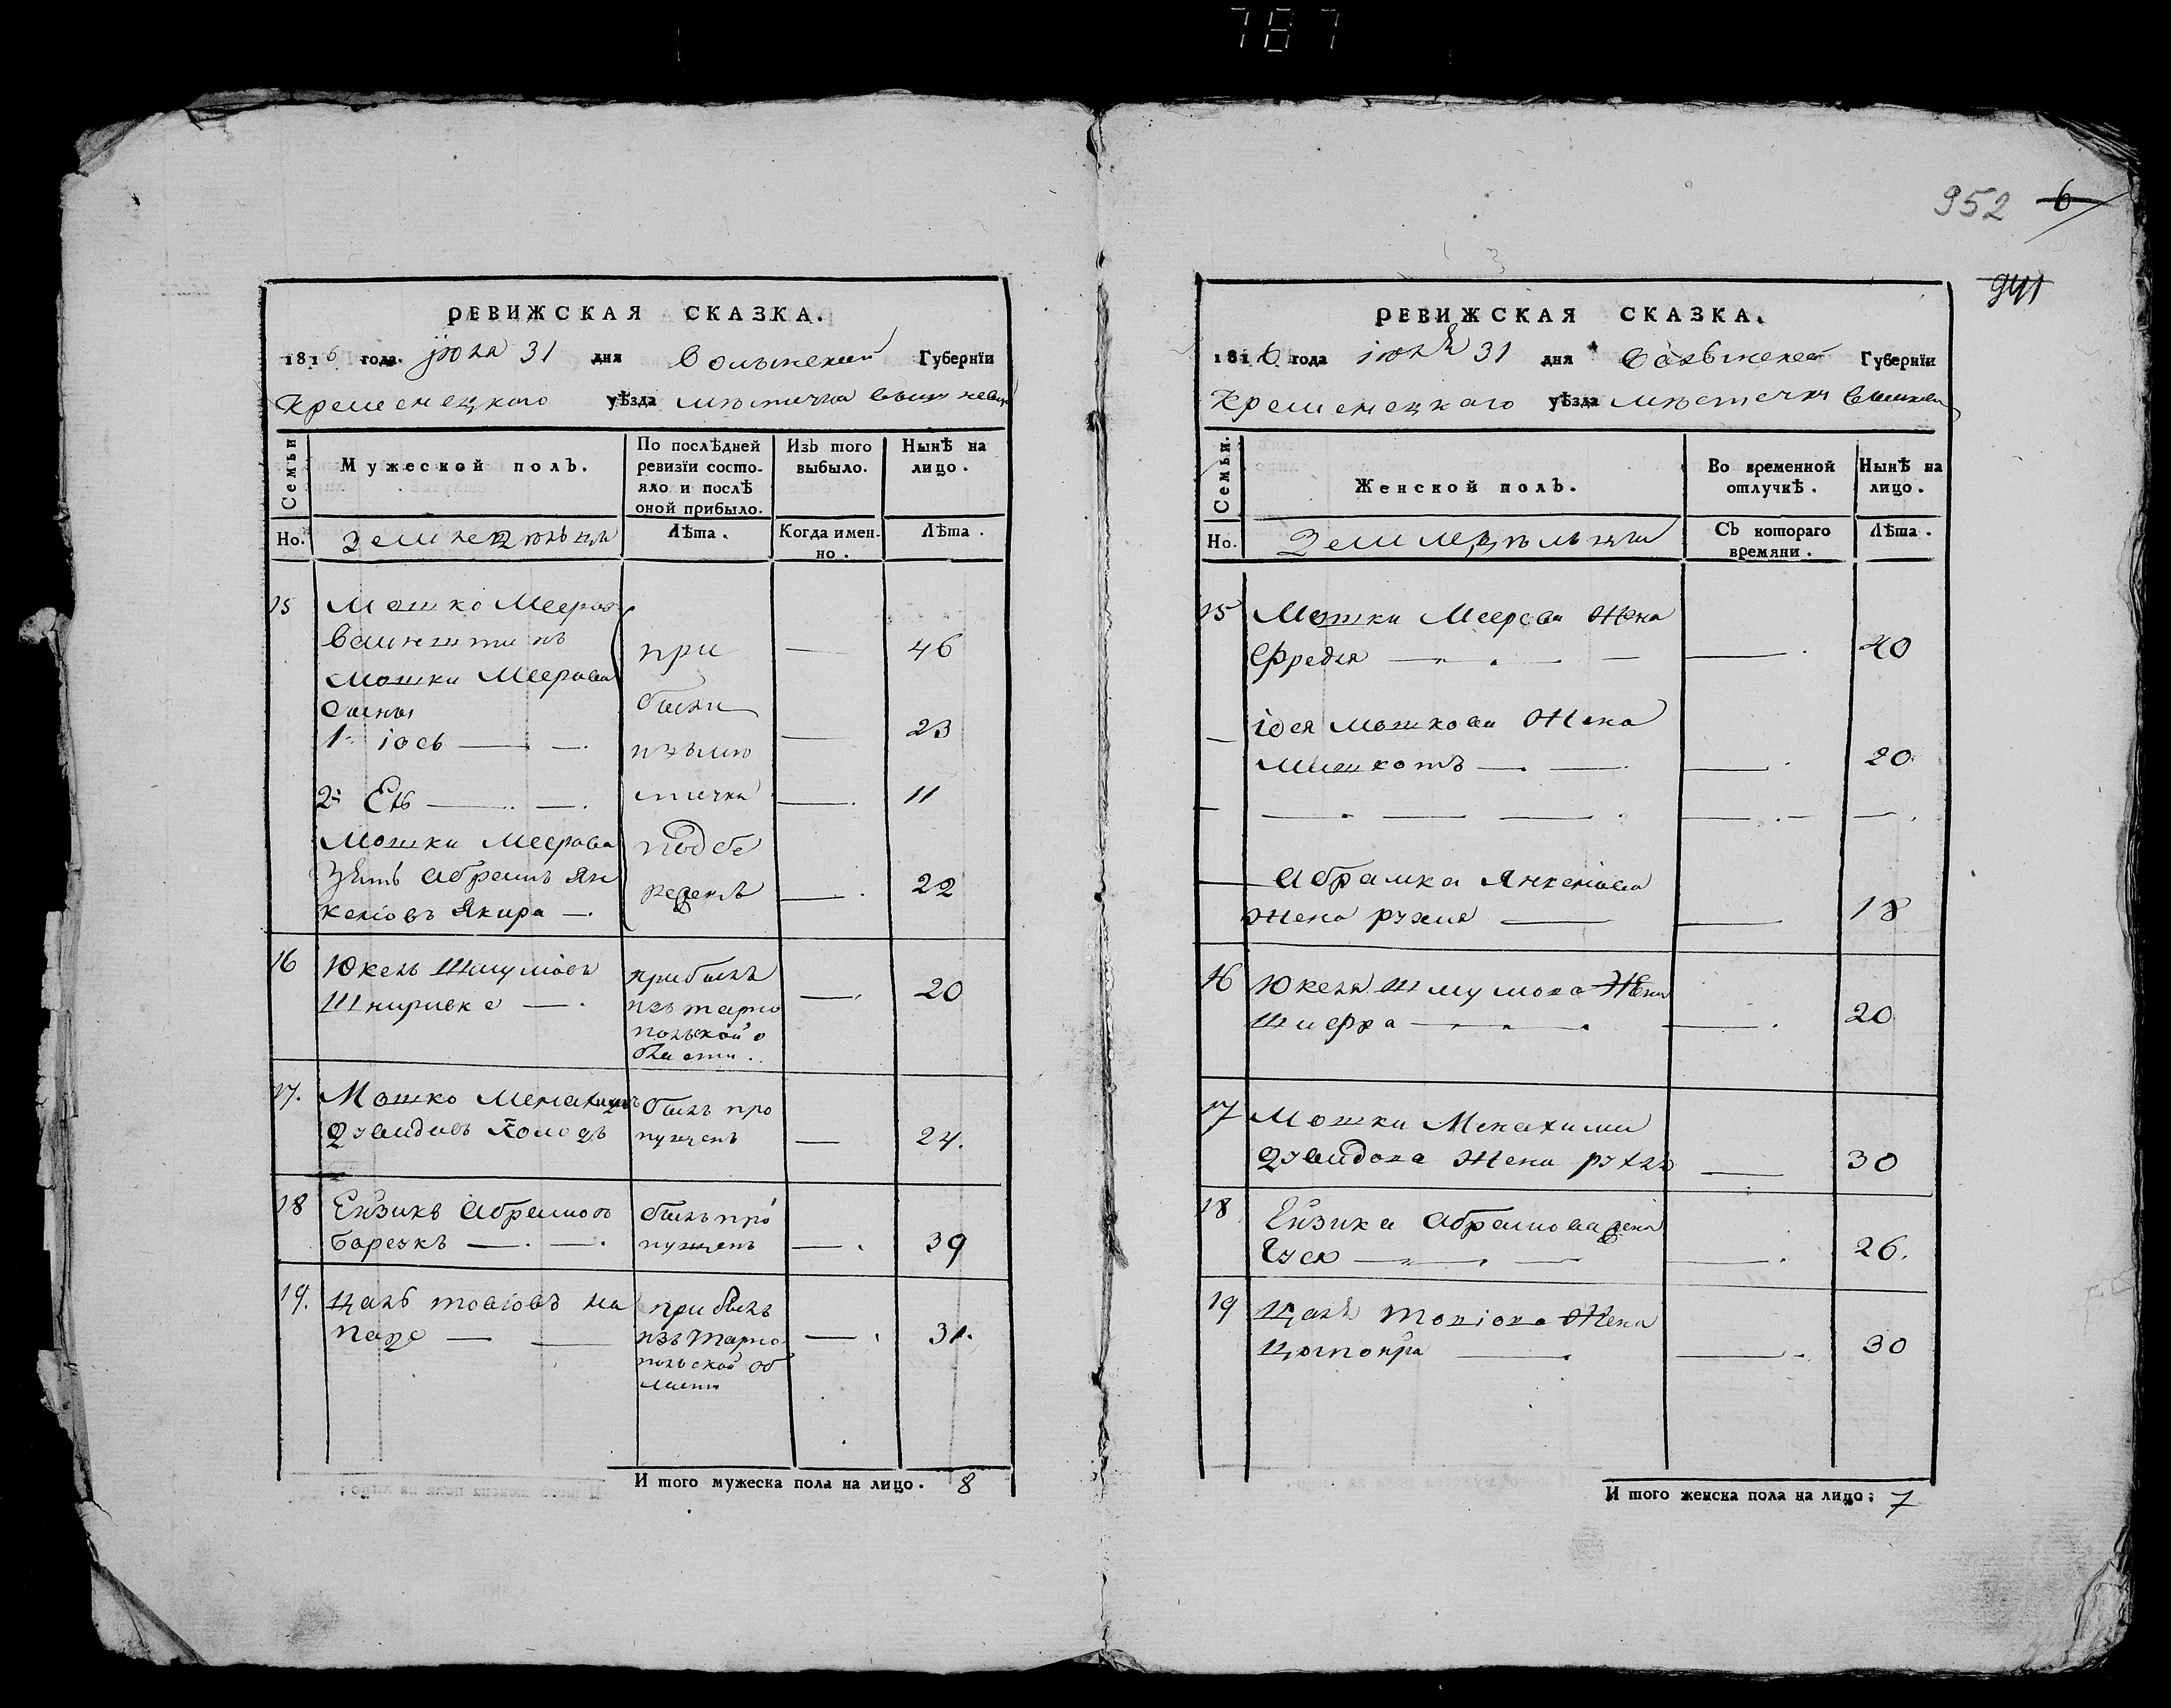 787
952 6
941
РЕВИЖСКАЯ СКАЗКА.
1816 года. июля 31 дня Волынской Губернїи
Кременецкаго уѣзда мѣстечка Вишневца
Семьи
Мужеской полъ.
По послѣдней ревизїи состо-
яло и послѣ
оной прибыло.
Изъ того
выбыло.
Нынѣ на
лицо.
Но.
Земледѣльцы
Лѣта.
Когда имен-
но.
Лѣта.
15 Мошко Мееров
Вайнштинъ при — 46
Мошки Меерова
сыны были
1й іось — — изъ мѣ — 23
2й Ель — — стечка — 11
Мошки Меерова подбе
Зять Абрамъ Ян
келіовъ Якира — резецъ — 22
16 Юкель Шмуліовъ прибылъ
Шнировке — изъ тарно — 20
польской о
бласти.
17. Мошко Менахимъ былъ про
Дувидовъ Колодъ пущенъ — 24.
18 Ейзикъ Абрамовъ былъ про
Барезкъ — — пущенъ — 39
19. Цаль товіовъ ка прибылъ
паце — — изъ Тарно — 31.
польской об
ласти
И того мужеска пола на лицо. 8
РЕВИЖСКАЯ СКАЗКА.
1816 года іюля 31 дня Волынской Губернїи
Кременецкаго уѣзда мѣстечки Вишневц
Семьи.
Женской полъ.
Во временной
отлучкѣ.
Нынѣ на
лицо.
Но.
Земледѣльцы
Съ котораго
времяни.
Лѣта.
15 Мошки Меерова Жена
Фредля — — 40
іося мошкова Жена
— Мишкотъ — — 20
— — — — — —
— Абрамка Янкеліова
Жена рухля — — 18
16 Юкеля Шмулиова Жена
Шифра — — 20
17 Мошки Менахими
Дувидова Жена рухль — 30
18 Ейзика Абрамова жена
Хуся — — 26.
19 Цаля Товіова Жена
Ципойра — — 30
И того женска пола на лицо: 7